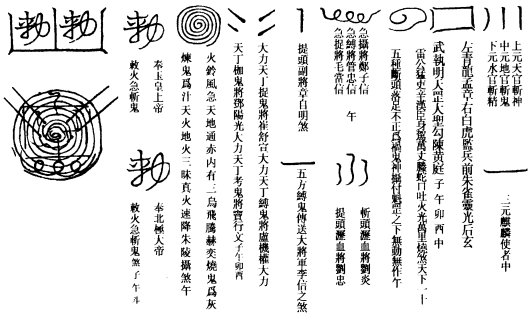 上元天官斬神
中元地官斬鬼
下元水官斬精
三元麒麟使者中
左青龍孟章右白虎監兵前朱雀靈光后玄
武執明大罡大聖勾陳黄庭 子午卯酉中
雷公猛吏辛漢臣身披萬丈螣蛇口吐火光萬里燒煞天下一十
五種斷頭落足不正爲禍鬼神攝付魁罡之下無動無作午
急攝將鄭子信
急縛將管忠信 午
急捉將毛當信
斬頭瀝血將劉炎
提頭瀝血將劉忠
提頭副將章自明煞
五方縛鬼傳送大將軍李信之煞
大力天丁捉鬼將崔舒宣大力天丁縛鬼將盧機權大力
天丁枷鬼將鄧陽光大力天丁考鬼將竇行文子午卯酉
火鈴風急天地通赤内有三烏飛騰赫奕燒鬼爲灰
煉鬼爲汁天火地火三昧真火速降朱陵攝煞午
勅
奉玉皇上帝
敕火急斬鬼
勅
奉北極大帝
敕火急斬鬼煞 子午斗
勅 勅